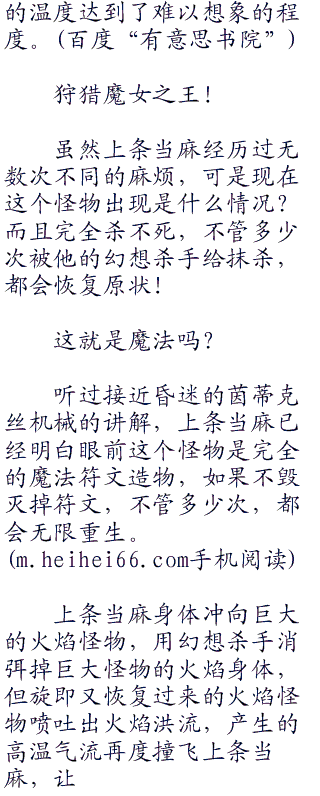 的温度达到了难以想象的程
度。(百度“有意思书院”)
狩猎魔女之王！
虽然上条当麻经历过无
数次不同的麻烦，可是现在
这个怪物出现是什么情况？
而且完全杀不死，不管多少
次被他的幻想杀手给抹杀，
都会恢复原状！
这就是魔法吗？
听过接近昏迷的茵蒂克
丝机械的讲解，上条当麻已
经明白眼前这个怪物是完全
的魔法符文造物，如果不毁
灭掉符文，不管多少次，都
会无限重生。
(m.heihei66.com手机阅读)
上条当麻身体冲向巨大
的火焰怪物，用幻想杀手消
弭掉巨大怪物的火焰身体，
但旋即又恢复过来的火焰怪
物喷吐出火焰洪流，产生的
高温气流再度撞飞上条当
麻，让